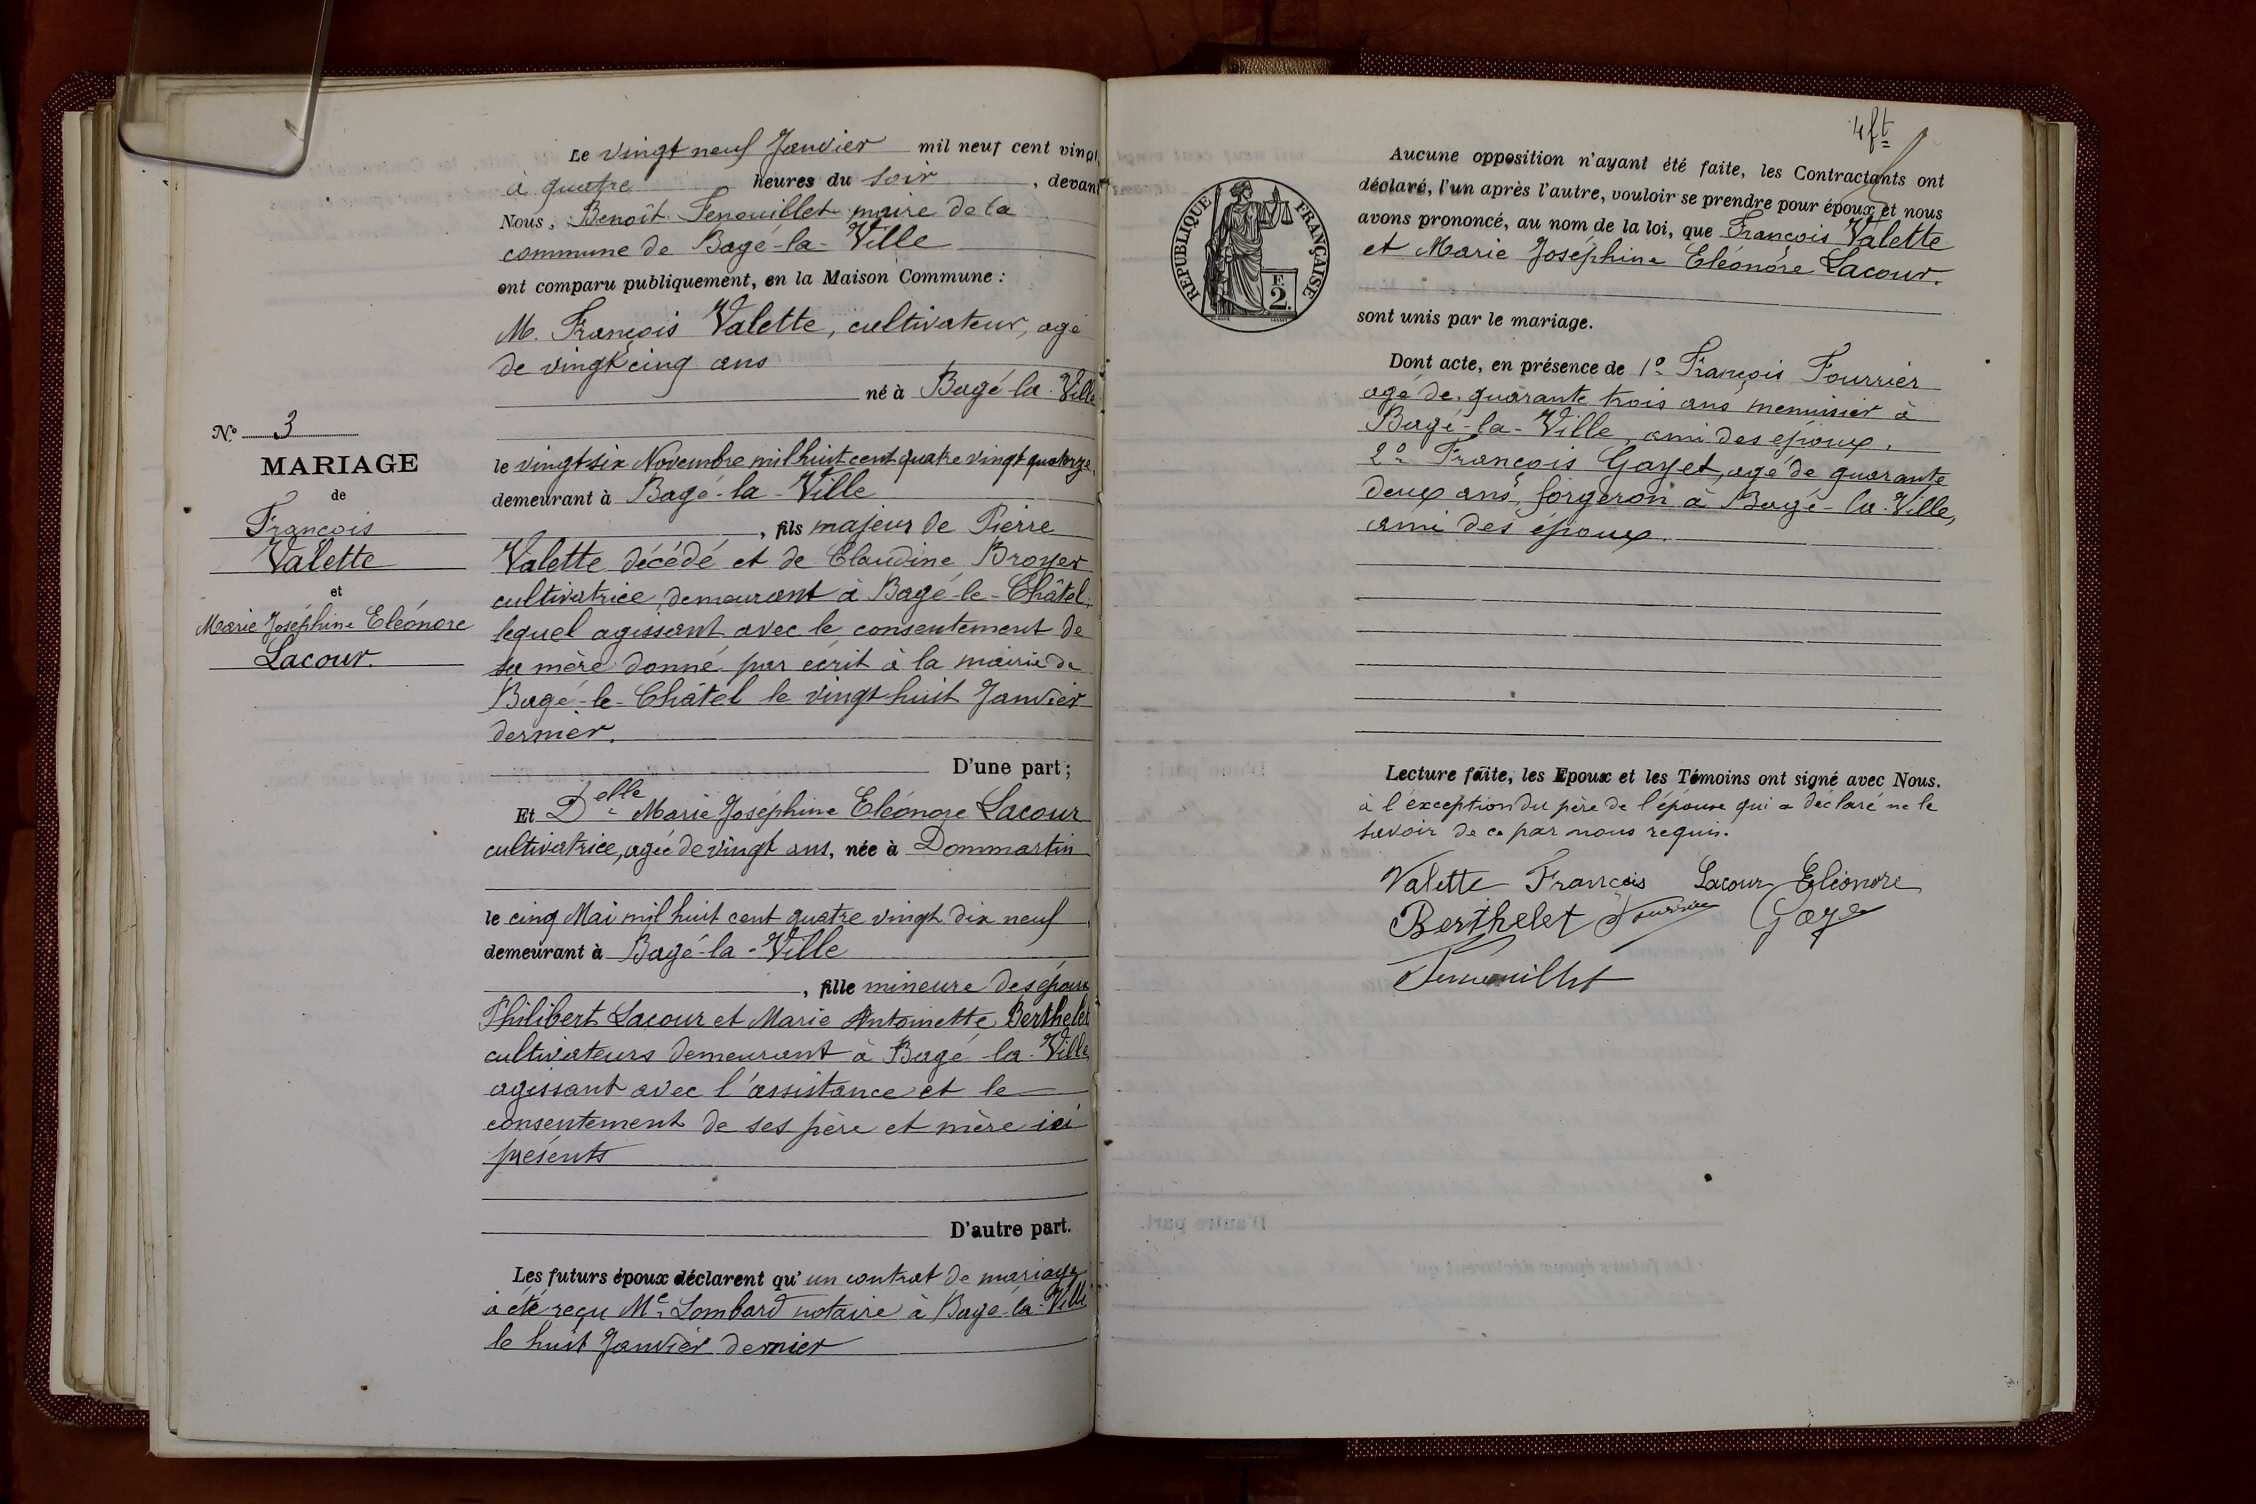 Le vingt neuf Janvier mil neuf cent vingt,
à quatre heures du soir, devant
Nous, Benoît Fenouillet maire de la
commune de Bagé-la-Ville
ont comparu publiquement, en la Maison Commune :
M. François Valette, cultivateur, agé
de vingt cinq ans
né à Bagé-la-Ville
le vingt six Novembre mil huit cent quatre vingt quatorze,
demeurant à Bagé-la-Ville
, fils majeur de Pierre
Valette décédé et de Claudine Broyer
cultivatrice, demeurant à Bagé-le-Châtel,
lequel agissant avec le consentement de
sa mère donné par écrit à la mairie de
Bagé-le-Châtel le vingt huit Janvier
dernier.
D'une part ;
N° 3
MARIAGE
de
François
Valette
et
Marie Joséphine Eléonore
Lacour.
Et Delle Marie Joséphine Eléonore Lacour
cultivatrice, agée de vingt ans, née à Dommartin
le cinq Mai mil huit cent quatre vingt dix neuf
demeurant à Bagé-la-Ville
, fille mineure des époux
Philibert Lacour et Marie Antoinette Berthelet
cultivateurs demeurant à Bagé-la-Ville,
agissant avec l'assistance et le
consentement de ses père et mère ici
présents
D'autre part.
Les futurs époux déclarent qu'un contrat de mariage
a été reçu Me Lombard notaire à Bagé-la-Ville
le huit Janvier dernier
4ft
REPUBLIQUE FRANÇAISE
F.
2.
Aucune opposition n'ayant été faite, les Contractants ont
déclaré, l'un après l'autre, vouloir se prendre pour époux et nous
avons prononcé, au nom de la loi, que François Valette
et Marie Joséphine Eléonore Lacour.
sont unis par le mariage.
Dont acte, en présence de 1° François Fourrier
agé de quarante trois ans menuisier à
Bagé-la-Ville, ami des époux.
2° François Gayet, agé de quarante
deux ans, forgeron à Bagé-la-Ville,
ami des époux.
Lecture faite, les Epoux et les Témoins ont signé avec Nous.
à l'exception du père de l'épouse qui a déclaré ne le
savoir de ce par nous requis.
Valette François Lacour Eléonore
Berthelet Fourrier Gaye
Fenouillet